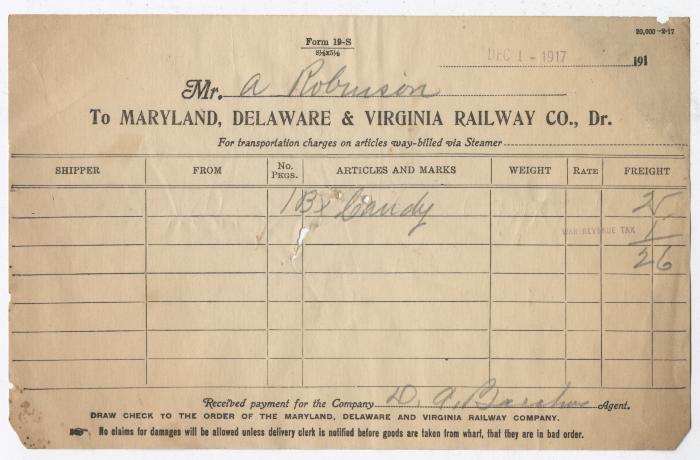 Form 19-S
8½x5½
20,000-2-17
DEC 1 - 1917 191
Mr. A Robinson
To MARYLAND, DELAWARE & VIRGINIA RAILWAY CO., Dr.
For transportation charges on articles way-billed via Steamer
SHIPPER FROM No. PKGS. ARTICLES AND MARKS WEIGHT RATE FREIGHT
1 Bx Candy 25
WAR REVENUE TAX 1
26
Received payment for the Company D. A. Agent.
DRAW CHECK TO THE ORDER OF THE MARYLAND, DELAWARE AND VIRGINIA RAILWAY COMPANY.
No claims for damages will be allowed unless delivery clerk is notified before goods are taken from wharf, that they are in bad order.